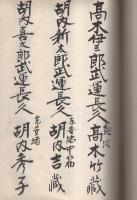 高木三郎武運長久 高木竹藏
胡内新太郎武運長久 胡内吉藏
胡内喜太郎武運長久 胡内秀子